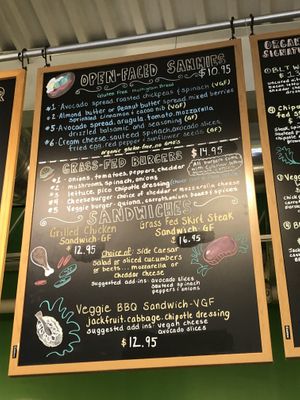 OPEN-FACED SAMMIES
Gluten Free Multi-grain Bread $10.95
#1 Avocado spread roasted chickpeas & spinach (VGF)
#2 Almond butter or Peanut butter spread mixed berries
sprinkled cinnamon & cocoa nib (VGF)
#5 Avocado spread, arugula, tomato, mozzarella,
drizzled balsamic and seasoning (GF)
#6 Cream cheese, sautéed spinach, avocado slices,
fried egg, red pepper & sunflower seeds (GF)
organic gluten-free, no bun
GRASS-FED BURGERS $14.95
onions, tomatoes, peppers, cheddar
mushrooms, spinach, onions
lettuce, pico Chipotle dressing
Cheese burger- choice of cheddar or mozzarella cheese
Veggie burger- quinoa, carrots, onions, beans & spices
All burgers come
SANDWICHES
Grilled Chicken
Sandwich-GF
$12.95
Grass Fed Skirt Steak
Sandwich GF
$16.95
Choice of: Side Caesar
Salad or sliced cucumbers
or beets... mozzarella or
cheddar cheese
Suggested add ins: avocado slices
sauteed spinach
peppers / onions
Veggie BBQ Sandwich-VGF
jackfruit, cabbage, chipotle dressing
suggested add ins: vegan cheese
avocado slices
$12.95
ORGANIC
BLT W
Chipotle